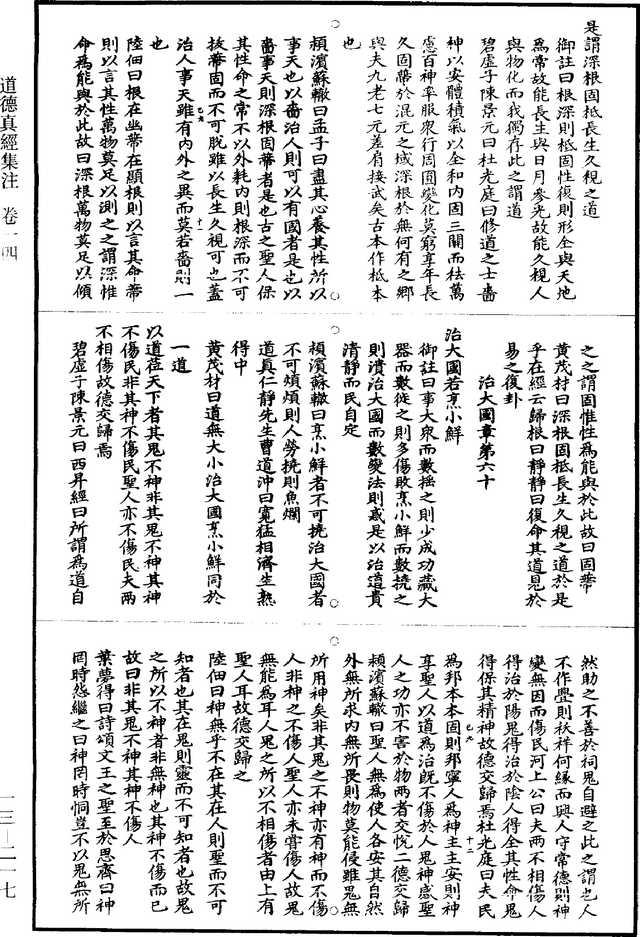 是謂深根固柢長生久視之道
御註曰根深則柢固性復則形全與天地
爲常故能長生與日月參光故能久視人
與物化而我獨存此之謂道
碧虛子陳景元曰杜光庭曰修道之士嗇
神以安體積氣以全和內固三關而袪萬
慮百神率服衆行周圓變化莫窮享年長
久固蔕於混元之域深根於無何有之鄉
與夫九老七元差肩接武矣古本作柢本
也
潁濱蘇轍曰孟子曰盡其心養其性所以
事天也以嗇治人則可以有國者是也以
嗇事天則深根固蔕者是也古之聖人保
其性命之常不以外耗內則根深而不可
拔蔕固而不可脫雖以長生久視可也蓋
治人事天雖有內外之異而莫若嗇則一
也
陸佃曰根在幽蔕在顯根則以言其命蔕
則以言其性萬物莫足以測之之謂深惟
命爲能與於此故曰深根萬物莫足以傾
之之謂固惟性爲能與於此故曰固蔕
黃茂材曰深根固柢長生久視之道於是
乎在經云歸根曰靜靜曰復命其道見於
易之復卦
治大國章第六十
治大國若烹小鮮
御註曰事大衆而數搖之則少成功藏大
器而數徙之則多傷敗烹小鮮而數撓之
則潰治大國而數變法則惑是以治道貴
清靜而民自定
潁濱蘇轍曰烹小鮮者不可撓治大國者
不可煩煩則人勞撓則魚爛
道真仁靜先生曹道沖曰寬猛相濟生熟
得中
黃茂材曰道無大小治大國烹小鮮同於
一道
以道莅天下者其鬼不神非其鬼不神其神
不傷民非其神不傷民聖人亦不傷民夫兩
不相傷故德交歸焉
碧虛子陳景元曰西昇經曰所謂爲道自
然助之不善於祠鬼自避之此之謂也人
不作釁則祅祥何緣而興人守常德則神
變無因而傷民河上公曰夫兩不相傷人
得治於陽鬼得治於陰人得全其性命鬼
得保其精神故德交歸焉杜光庭曰夫民
爲邦本本固則邦寧人爲神主主安則神
享聖人以道爲治既不傷於人鬼神感聖
人之功亦不害於物兩者交悅二德交歸
潁濱蘇轍曰聖人無爲使人各安其自然
外無所求內無所畏則物莫能侵雖鬼無
所用神矣非其鬼之不神亦有神而不傷
人非神之不傷人聖人亦未嘗傷人故鬼
無能爲耳人鬼之所以不相傷者由上有
聖人耳故德交歸之
陸佃曰神無乎不在其在人則聖而不可
知者也其在鬼則靈而不可知者也故鬼
之所以不神者非無神也其神不傷而已
故曰非其鬼不神其神不傷人
葉夢得曰詩頌文王之聖至於思齊曰神
罔時怨繼之曰神罔時恫豈不以鬼無所
道德真經集注 卷一四
一三—二一七